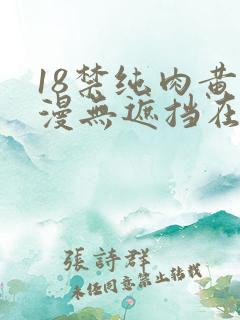 18禁纯肉黄
漫無遮挡在
張詩群
未经同意禁止转载